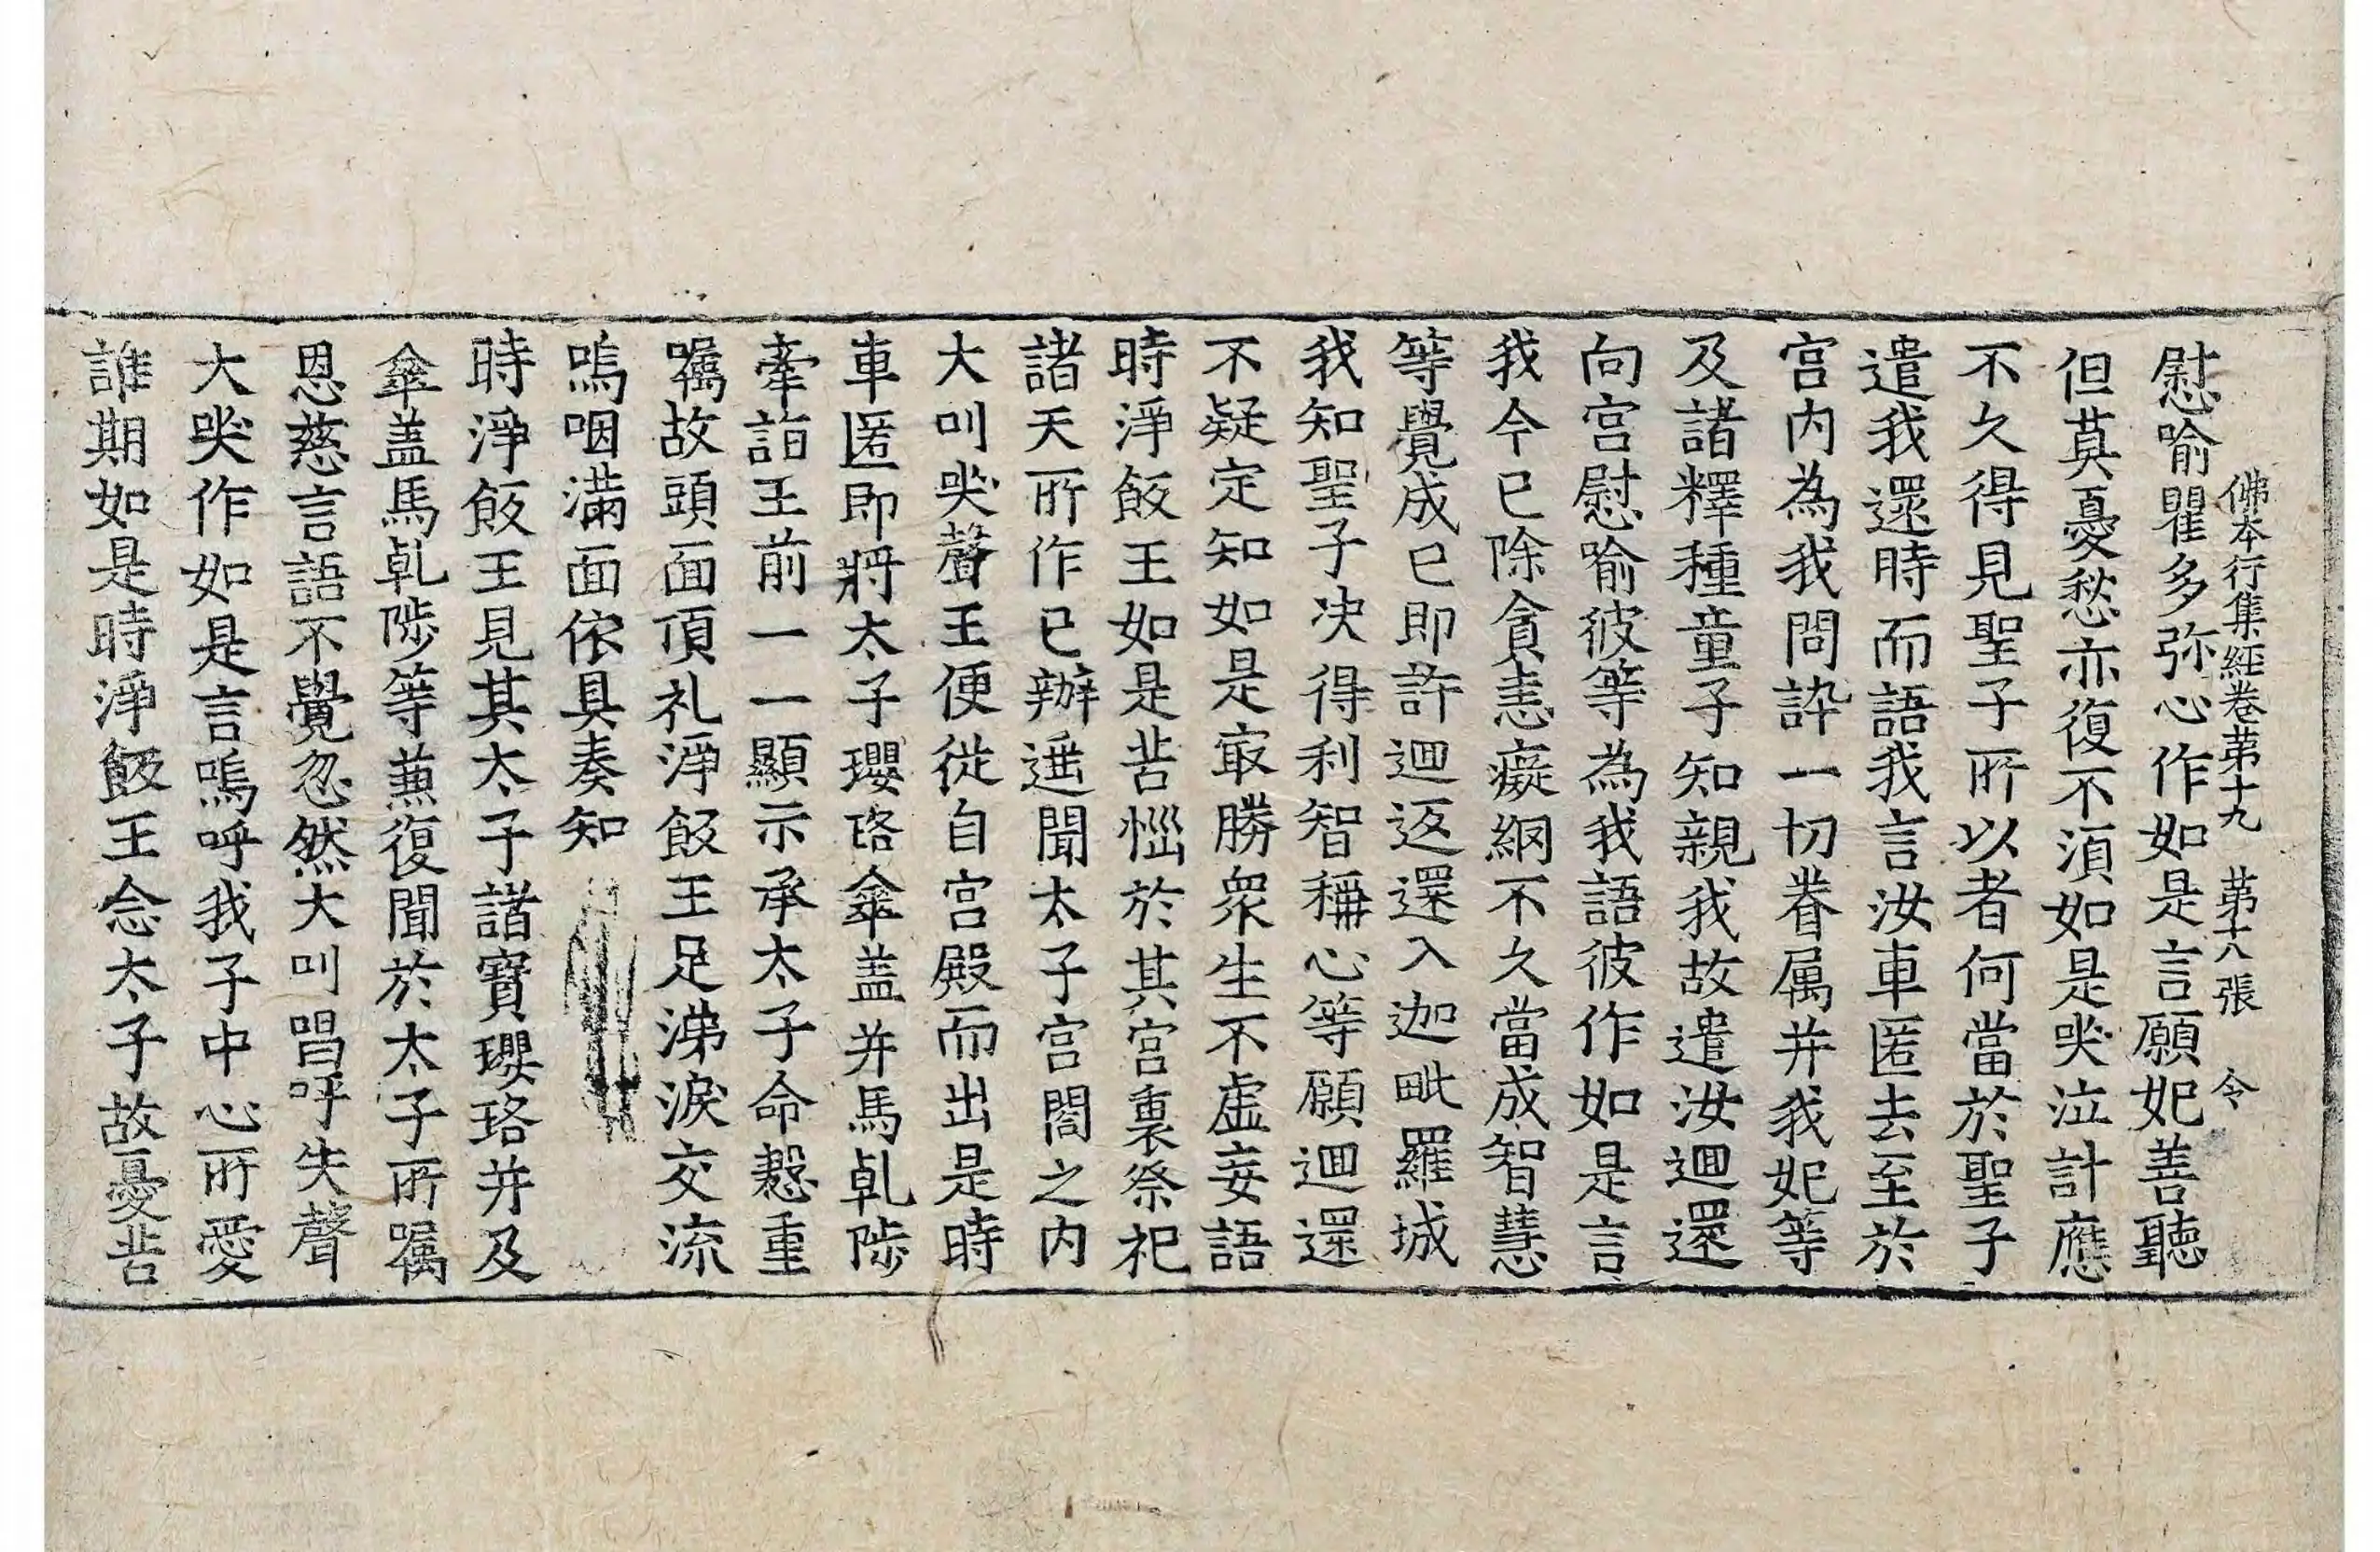 佛本行集經卷第十九　第十八張　令
慰喻瞿多弥心作如是言願妃善聽
但莫憂愁亦復不湏如是哭泣計應
不久得見聖子所以者何當於聖子
遣我還時而語我言汝車匿去至於
宫内為我問訊一切眷属并我妃等
及諸釋種童子知親我故遣汝迴還
向宫慰喻彼等為我語彼作如是言
我今已除貪恚癡網不久當成智慧
等覺成已即許迴返還入迦毗羅城
我知聖子决得利智稱心等願迴還
不疑定知如是㝡勝衆生不虚妄語
時淨飯王如是苦惱於其宫裏祭祀
諸天所作已辦遥聞太子宫閤之内
大叫哭聲王便從自宫殿而出是時
車匿即將太子瓔珞傘盖并馬乹陟
牽詣王前一一顯示承太子命慇重
嘱故頭面頂礼淨飯王足涕淚交流
嗚咽滿面依具奏知
時淨飯王見其太子諸寶瓔珞并及
傘盖馬乹陟等兼復聞於太子所嘱
恩慈言語不覺忽然大叫唱呼失聲
大哭作如是言嗚呼我子中心所愛
誰期如是時淨飯王念太子故憂苦